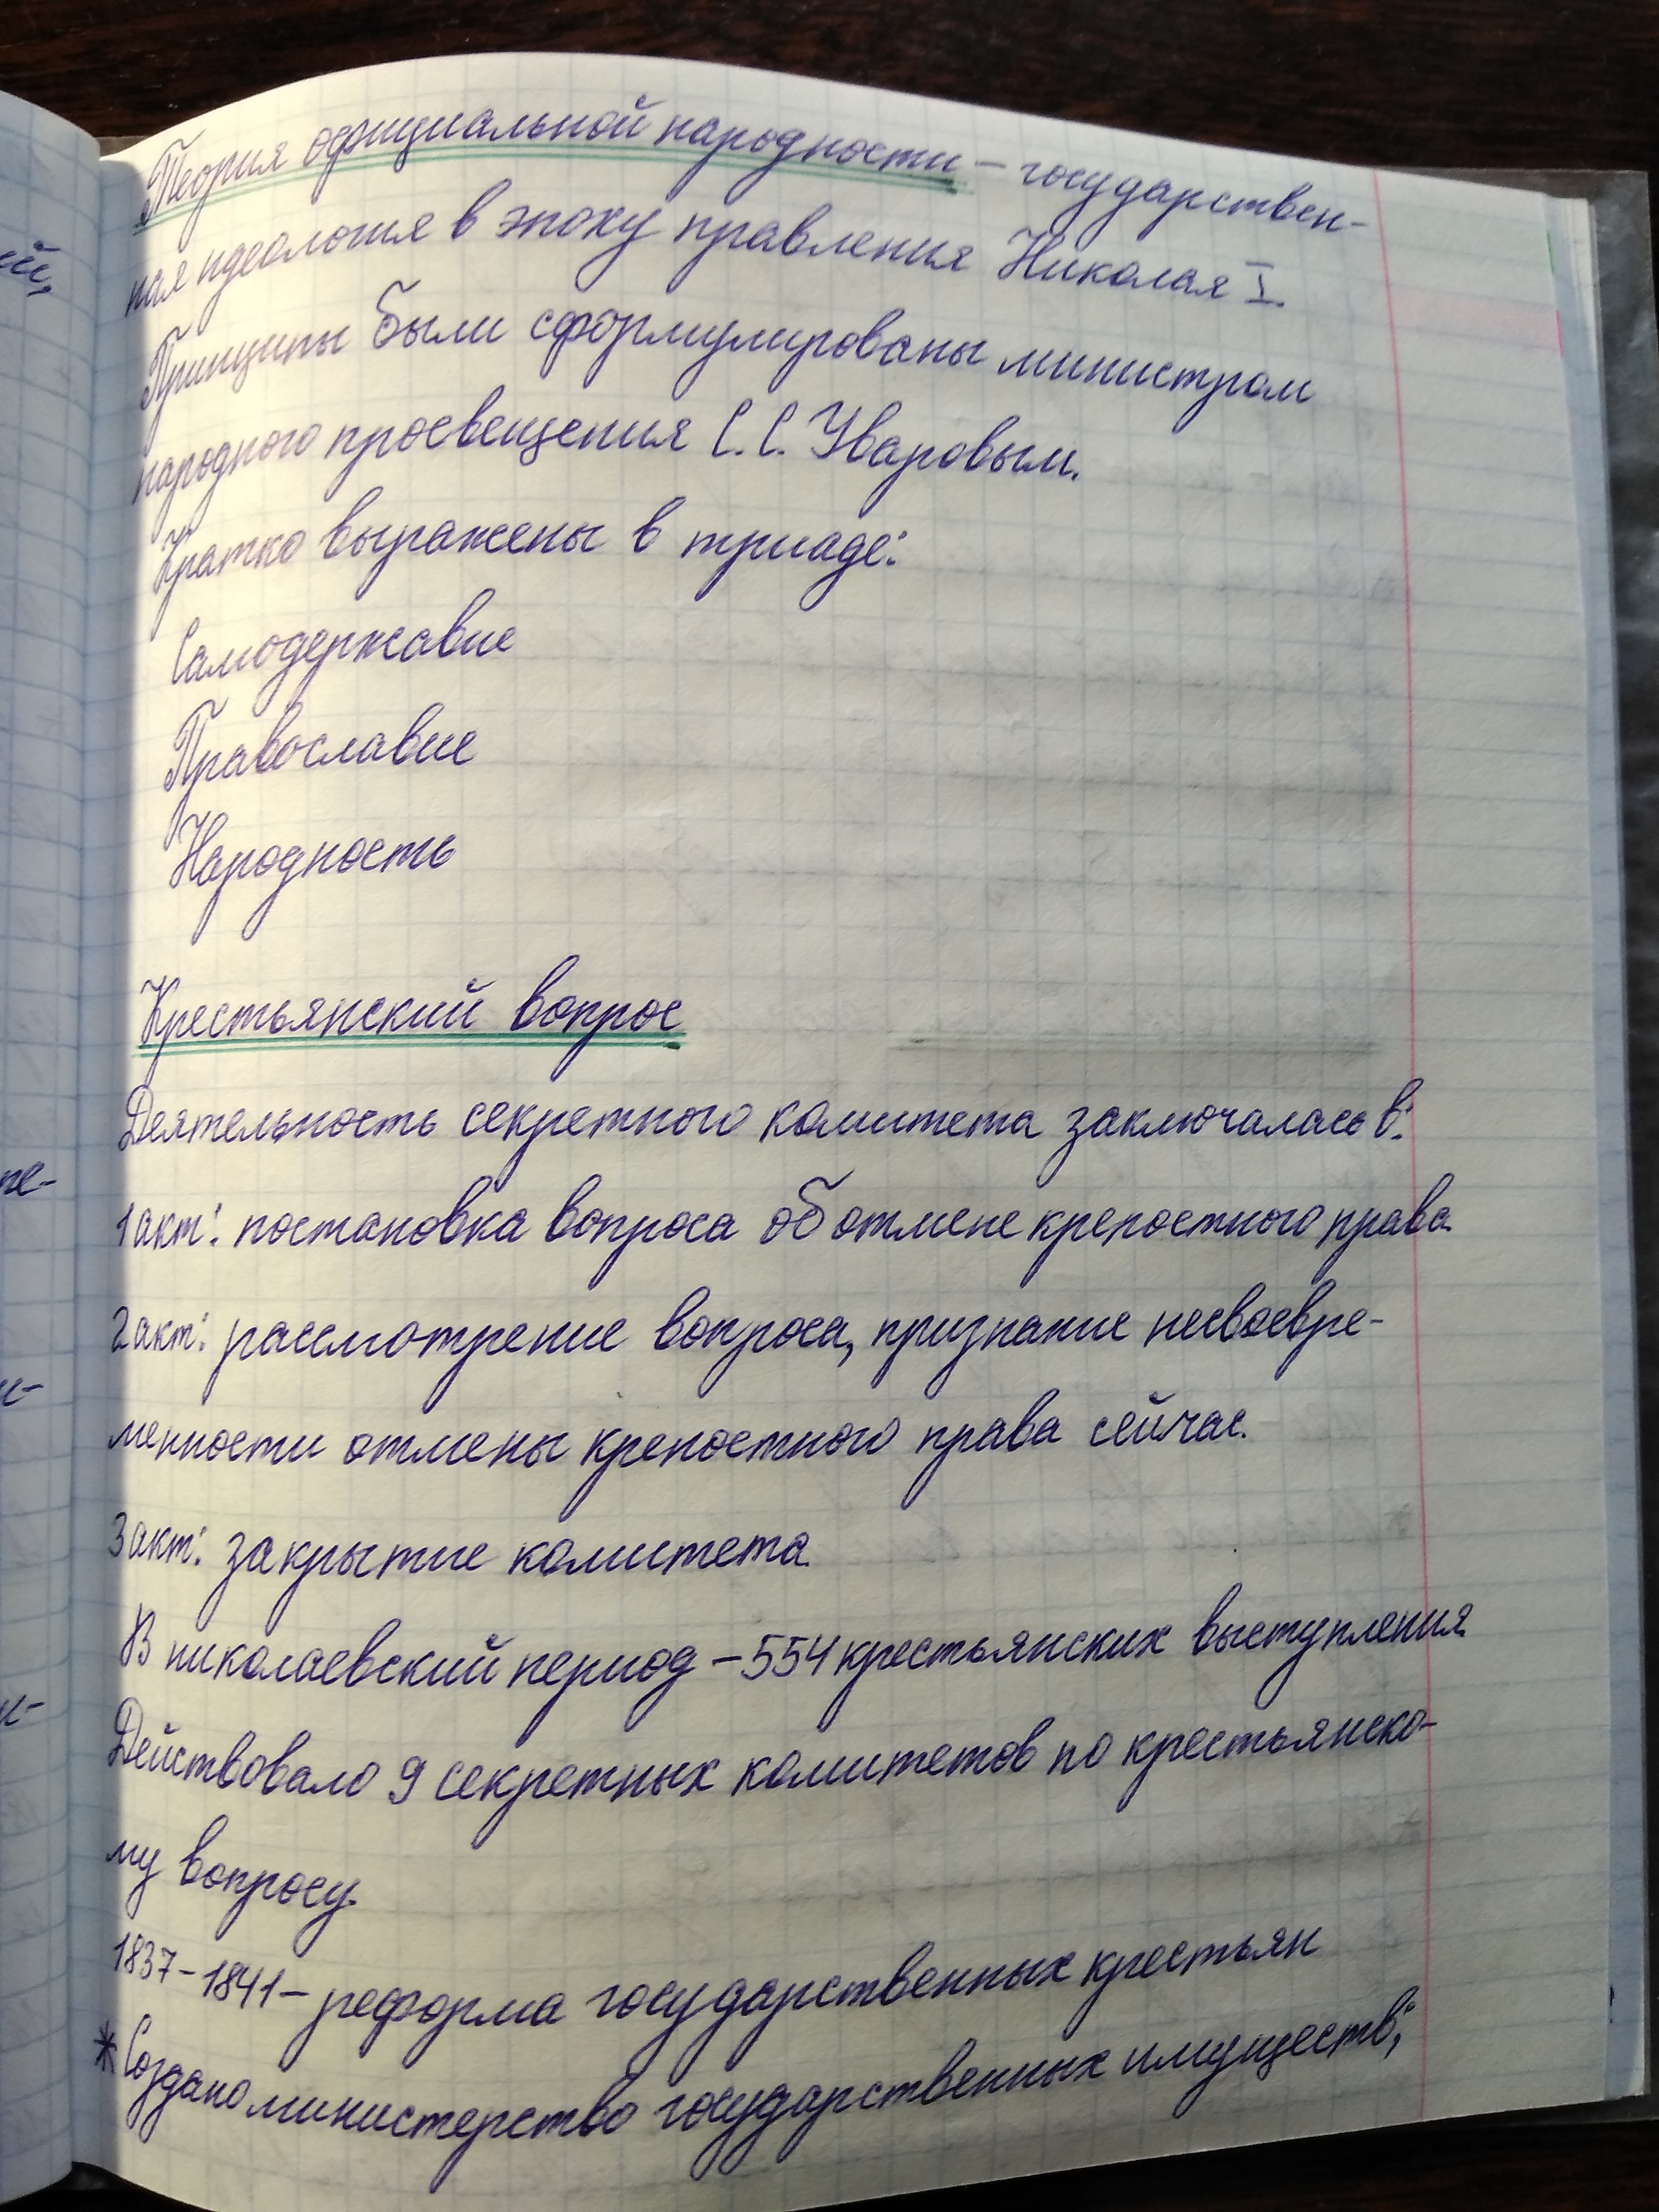 Теория официальной народности – государствен-
ная идеология в эпоху правления Николая I.
Принципы были сформулированы министром
народного просвещения С.С. Уваровым.
Кратко выражены в триаде:
Самодержавие
Православие
Народность
Крестьянский вопрос
Деятельность секретного комитета заключалась в:
1 акт: постановка вопроса об отмене крепостного права
2 акт: рассмотрение вопроса, признание несвоевре-
менности отмены крепостного права сейчас.
3 акт: закрытие комитета
В николаевский период – 554 крестьянских выступления
Действовало 9 секретных комитетов по крестьянско-
му вопросу.
1837 – 1841 – реформа государственных крестьян
* Создано министерство государственных имуществ;